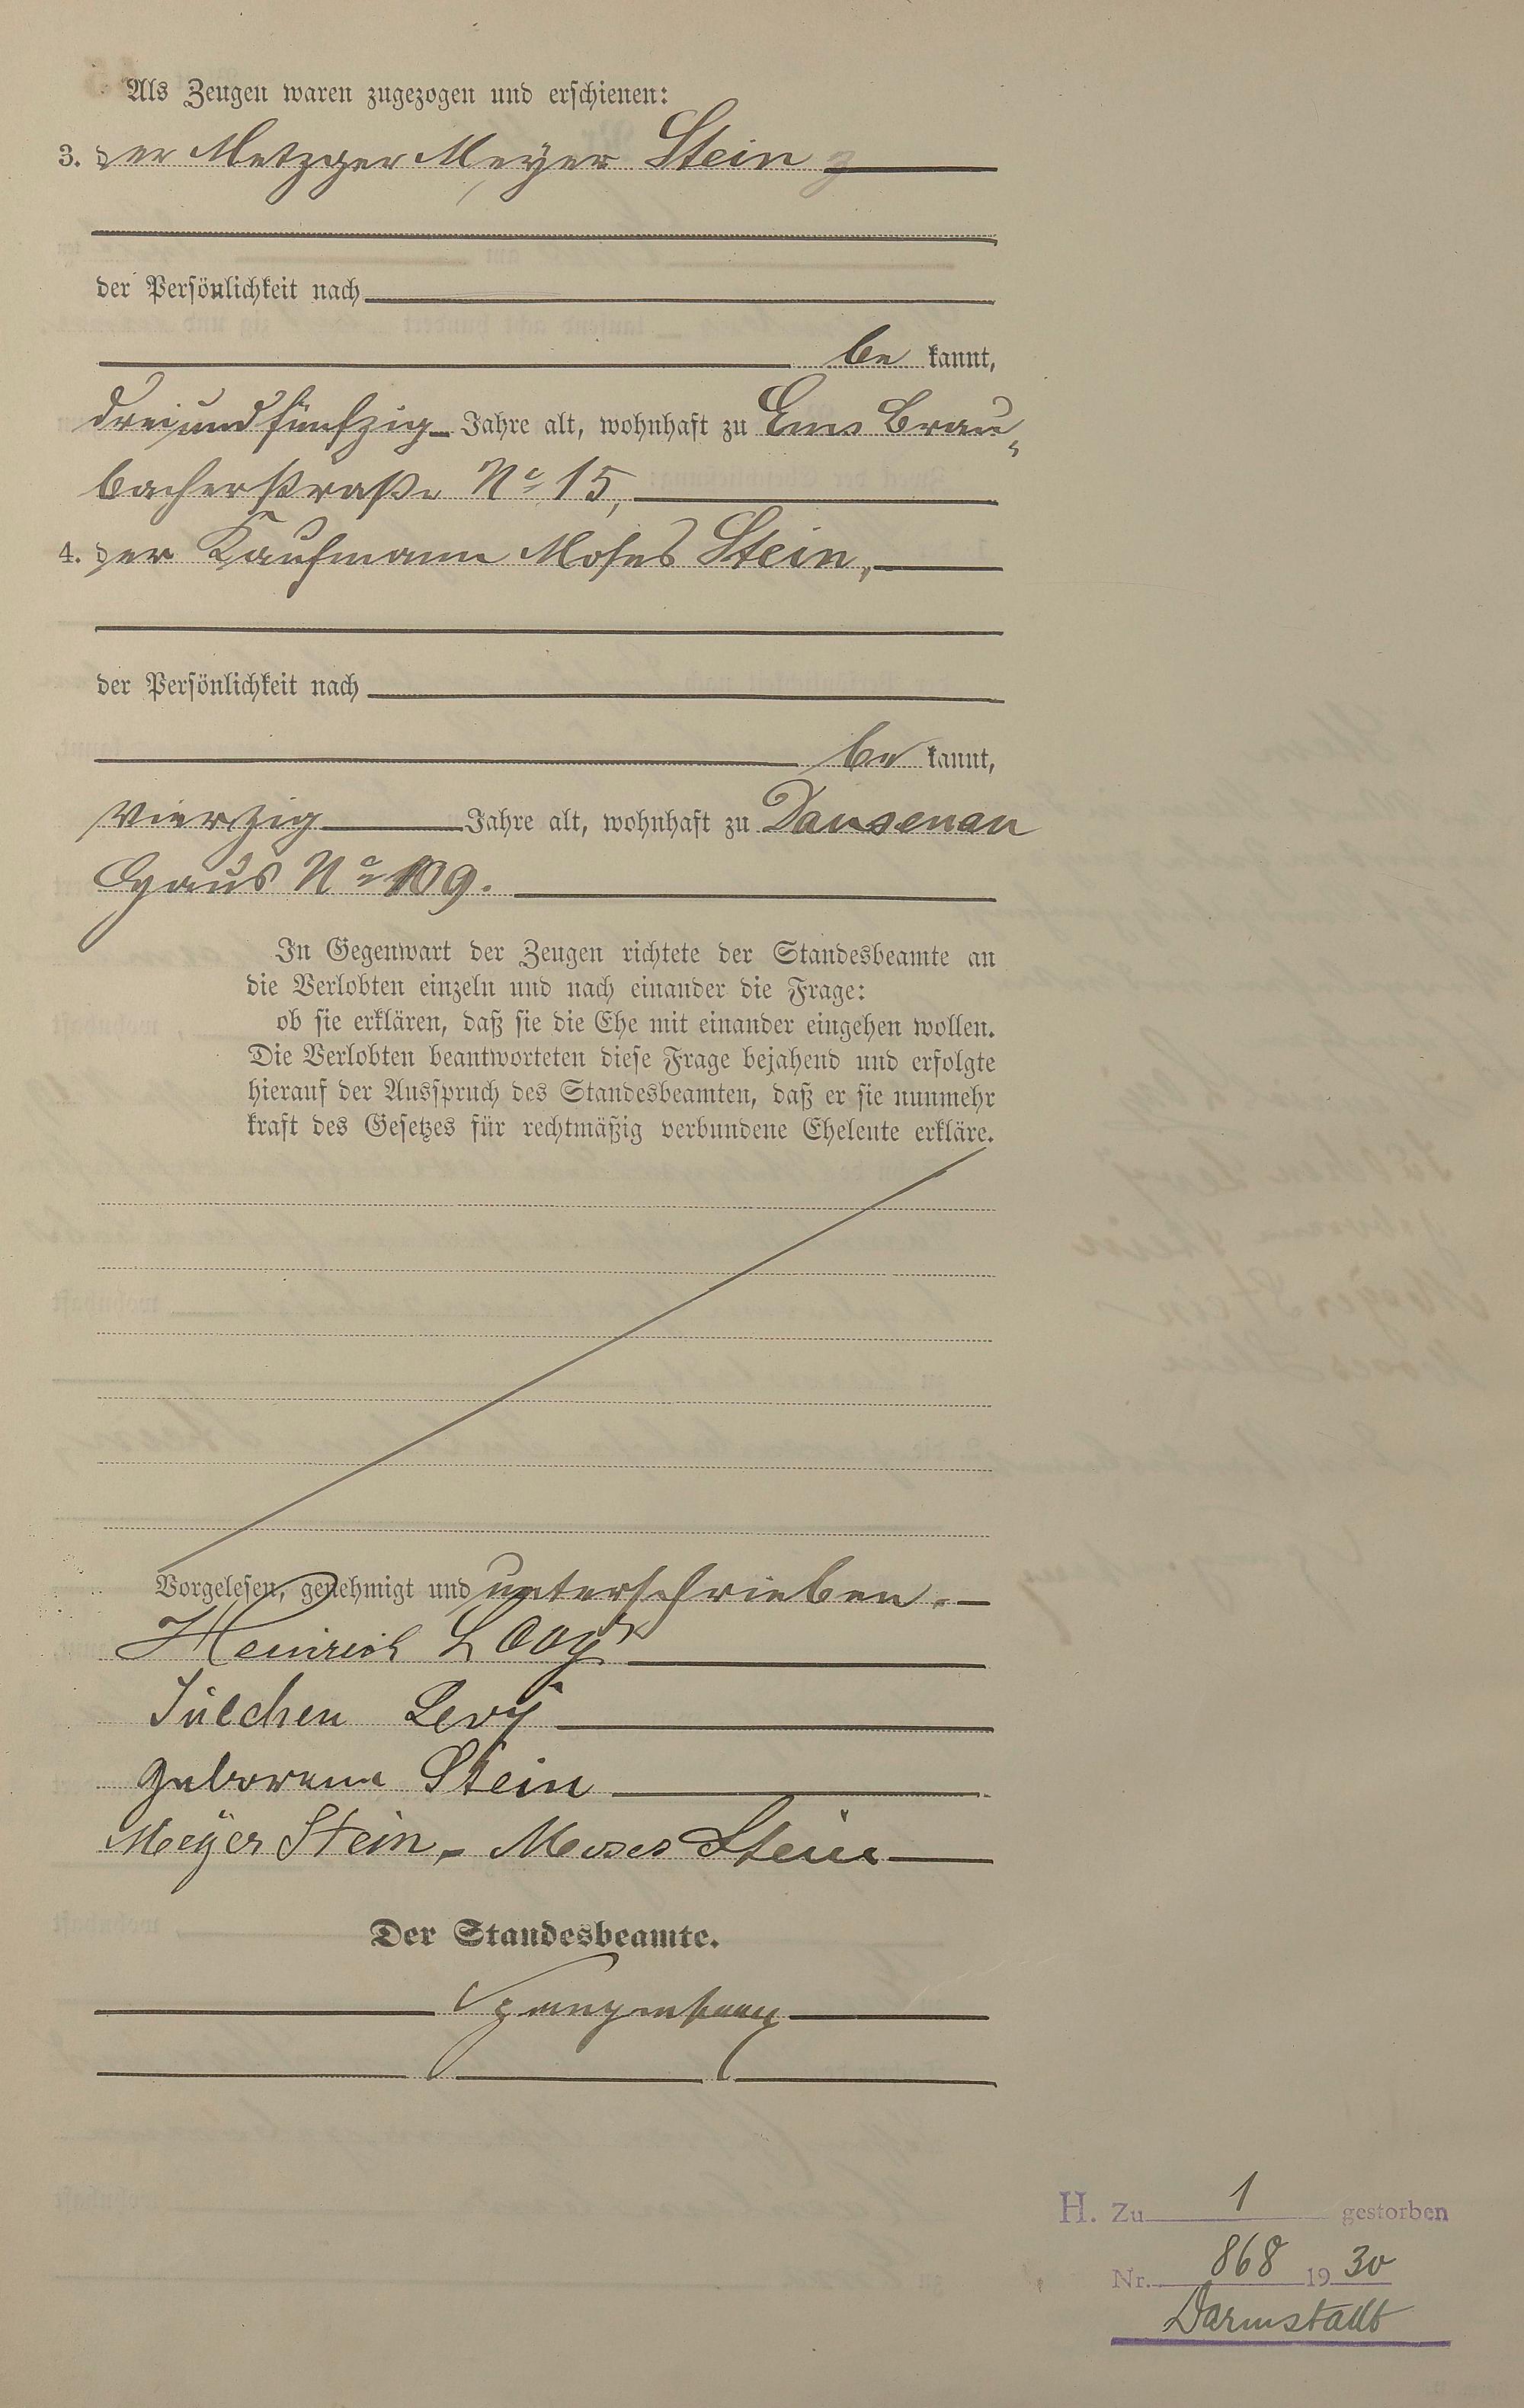 Als Zeugen waren zugezogen und erschienen:
3. der Metzger Meyer Stein
der Persönlichkeit nach
be kannt,
dreiundfünfzig Jahre alt, wohnhaft zu Ems Brau-
bacherstraße No 15,
4. der Kaufmann Moses Stein,
der Persönlichkeit nach
be kannt,
vierzig Jahre alt, wohnhaft zu Dausenau
Haus No 109.
In Gegenwart der Zeugen richtete der Standesbeamte an
die Verlobten einzeln und nach einander die Frage:
ob sie erklären, daß sie die Ehe mit einander eingehen wollen.
Die Verlobten beantworteten diese Frage bejahend und erfolgte
hierauf der Ausspruch des Standesbeamten, daß er sie nunmehr
kraft des Gesetzes für rechtmäßig verbundene Eheleute erkläre.
Vorgelesen, genehmigt und unterschrieben.
Heinrich
Julchen Levy
geborene Stein
Meyer Stein. Moses Stein
Der Standesbeamte.
H. Zu 1 gestorben
Nr. 868 1930
Darmstadt